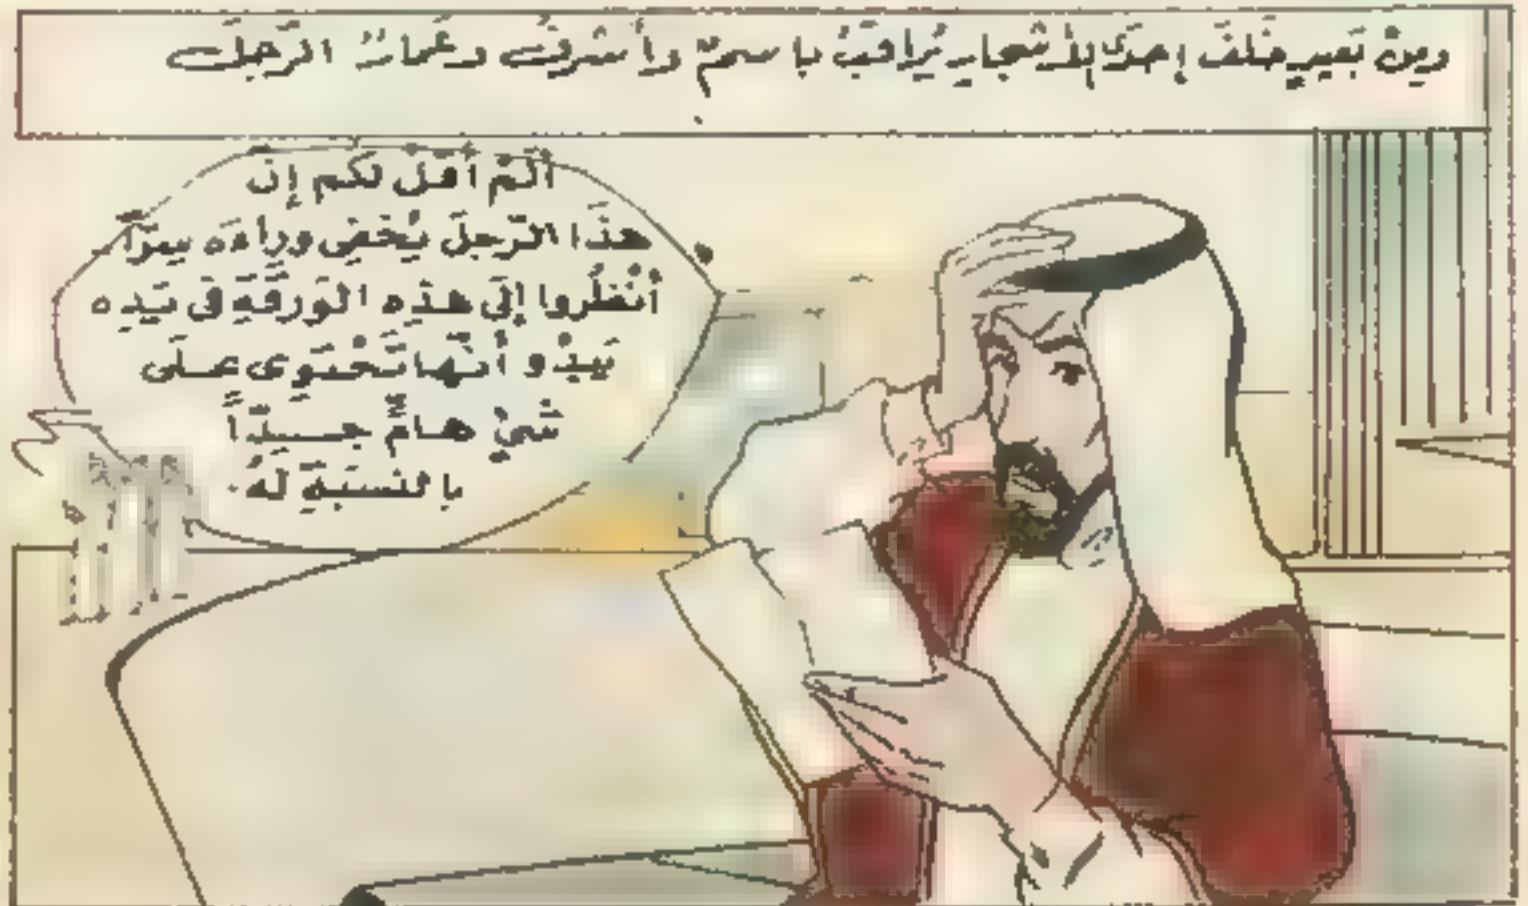 ومِنْ بَعيدٍ خَلفَ إحدَى الأشجارِ يُراقبُ باسمٌ وأشرفُ وعَمادُ الرَّجلَ
أَلَمْ أَقُلْ لَكُم إنَّ
هذَا الرَّجلَ يُخفِى وراءَه سِرّاً
أُنْظُروا إلَى هذِه الوَرقَةِ فى يَدِه
يَبدُو أنَّها تَحْتَوِى عَلَى
شَىْءٍ هامٍّ جِدّاً
بالنسبَةِ لَهُ.